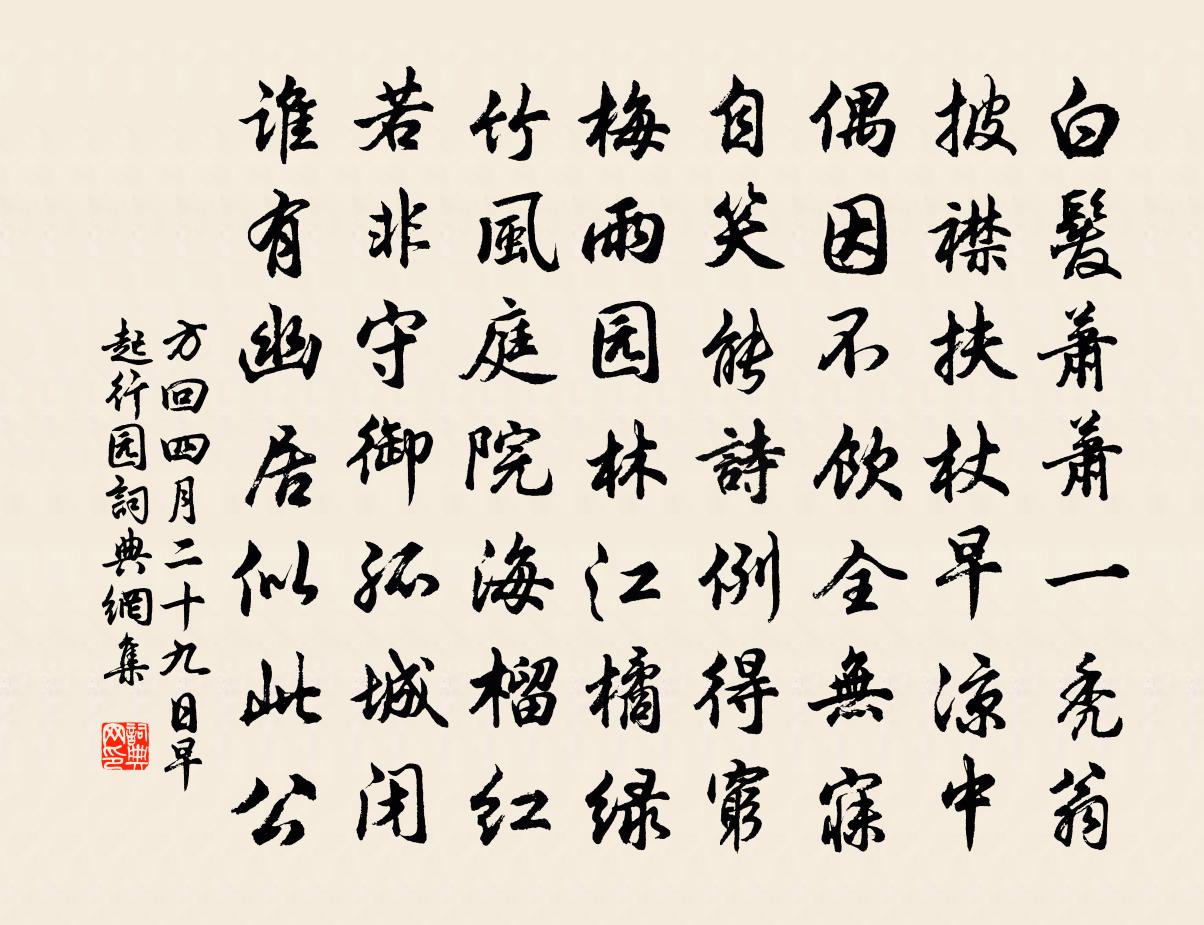 白髮蕭蕭一禿翁
披襟扶杖早涼中
偶因不飲全無寐
自笑能詩例得窮
梅雨园林江橘绿
竹風庭院海榴红
若非守御孤城闭
谁有幽居似此公
方回四月二十九日早
起行园詞典網集
詞典网印